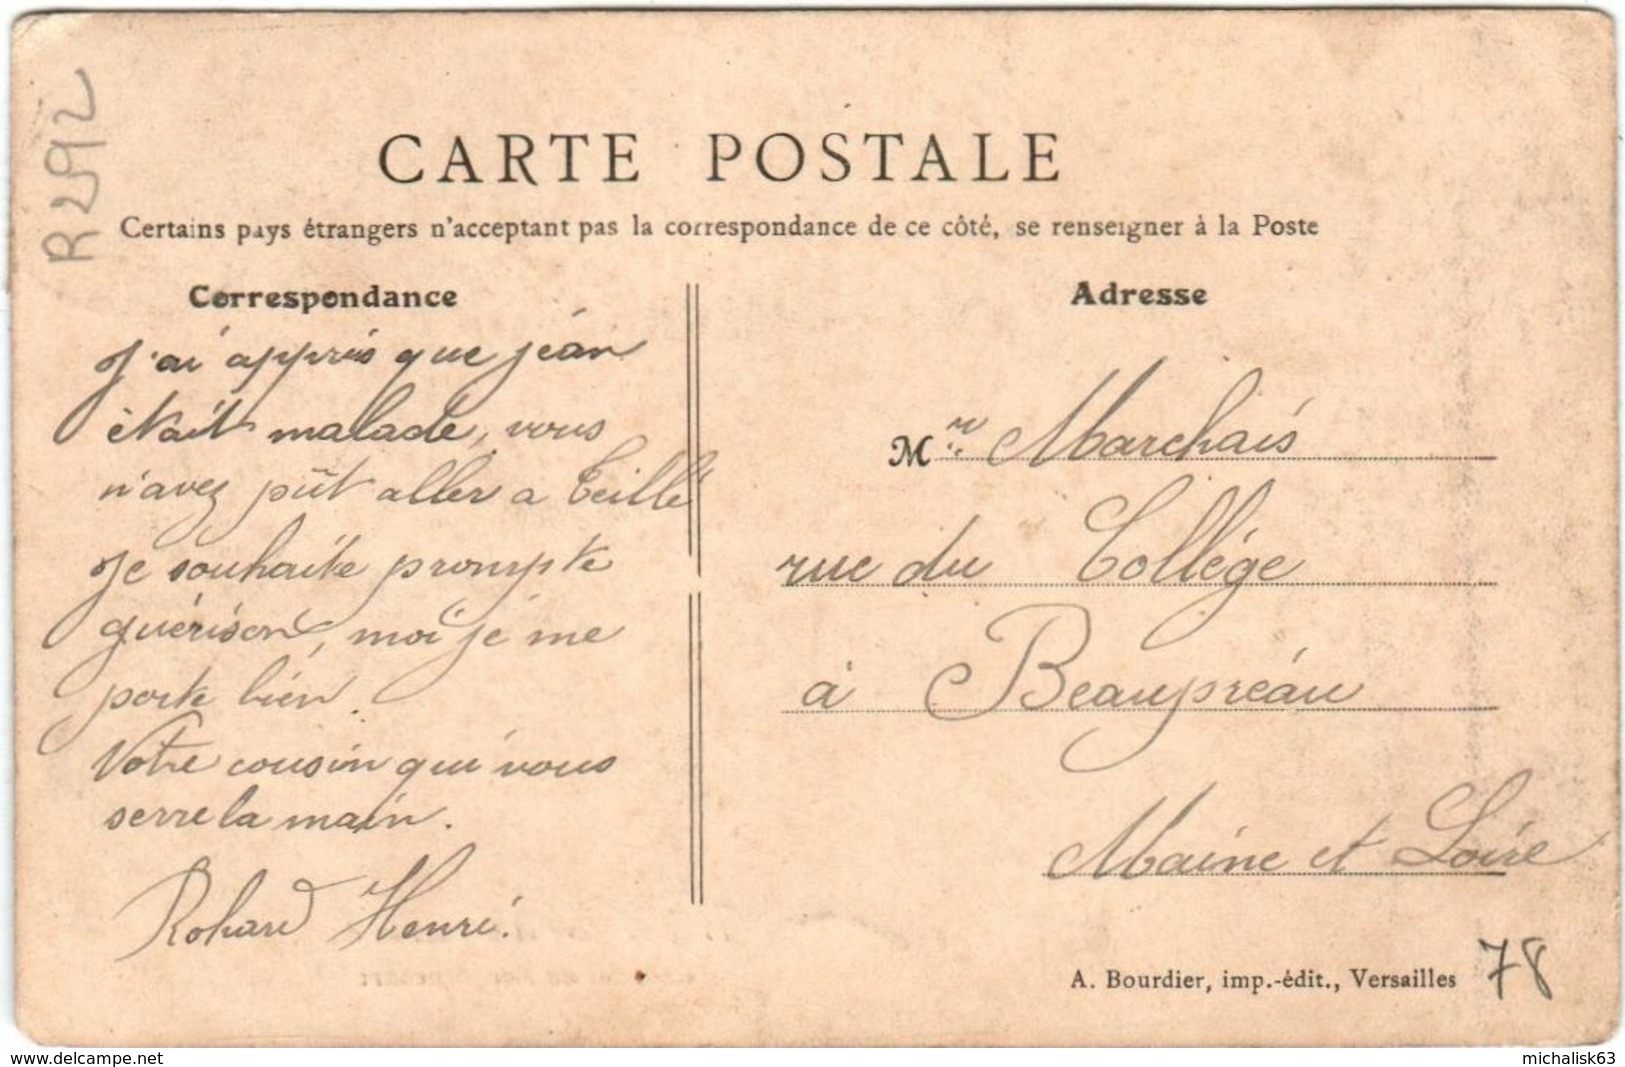 R 292
CARTE POSTALE
Certains pays étrangers n'acceptent pas la correspondance de ce côté, se renseigner à la Poste
Correspondance
J'ai appris que jéan
était malade, vous
n'avez pût aller a Teillé
Je souhaite prompte
guérison, moi je me
porte bien.
Votre cousin qui vous
serre la main.
Rohard Henri.
Adresse
Mr. Marchais
rue du Collège
à Beaupréau
Maine et Loire
A. Bourdier, imp.-édit., Versailles
78
www.delcampe.net
michalisk63